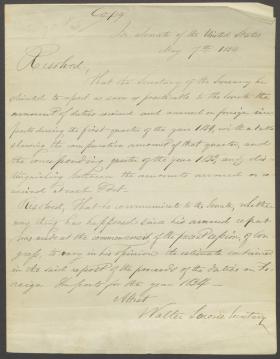 Copy
In Senate of the United States
May 7th 1834
Resolved,
That the Secretary of the Treasury be
directed to report as soon as practicable to the Senate the
amount of duties received and accrued on foreign im
ports during the first quarter of the year 1834, with a table
showing the comparative amount of that quarter, and
the corresponding quarter of the year 1833, and dis-
tinguishing between the amounts accrued or re
ceived at each Port.
Resolved, That he communicate to the Senate, whether
any thing has happened since his annual report
was made at the commencement of the present session of Con
gress, to vary in his opinion the estimate contained
in the said report of the proceeds of the duties on Fo
reign Imports for the year 1834
Attest
Walter Lowrie Secretary